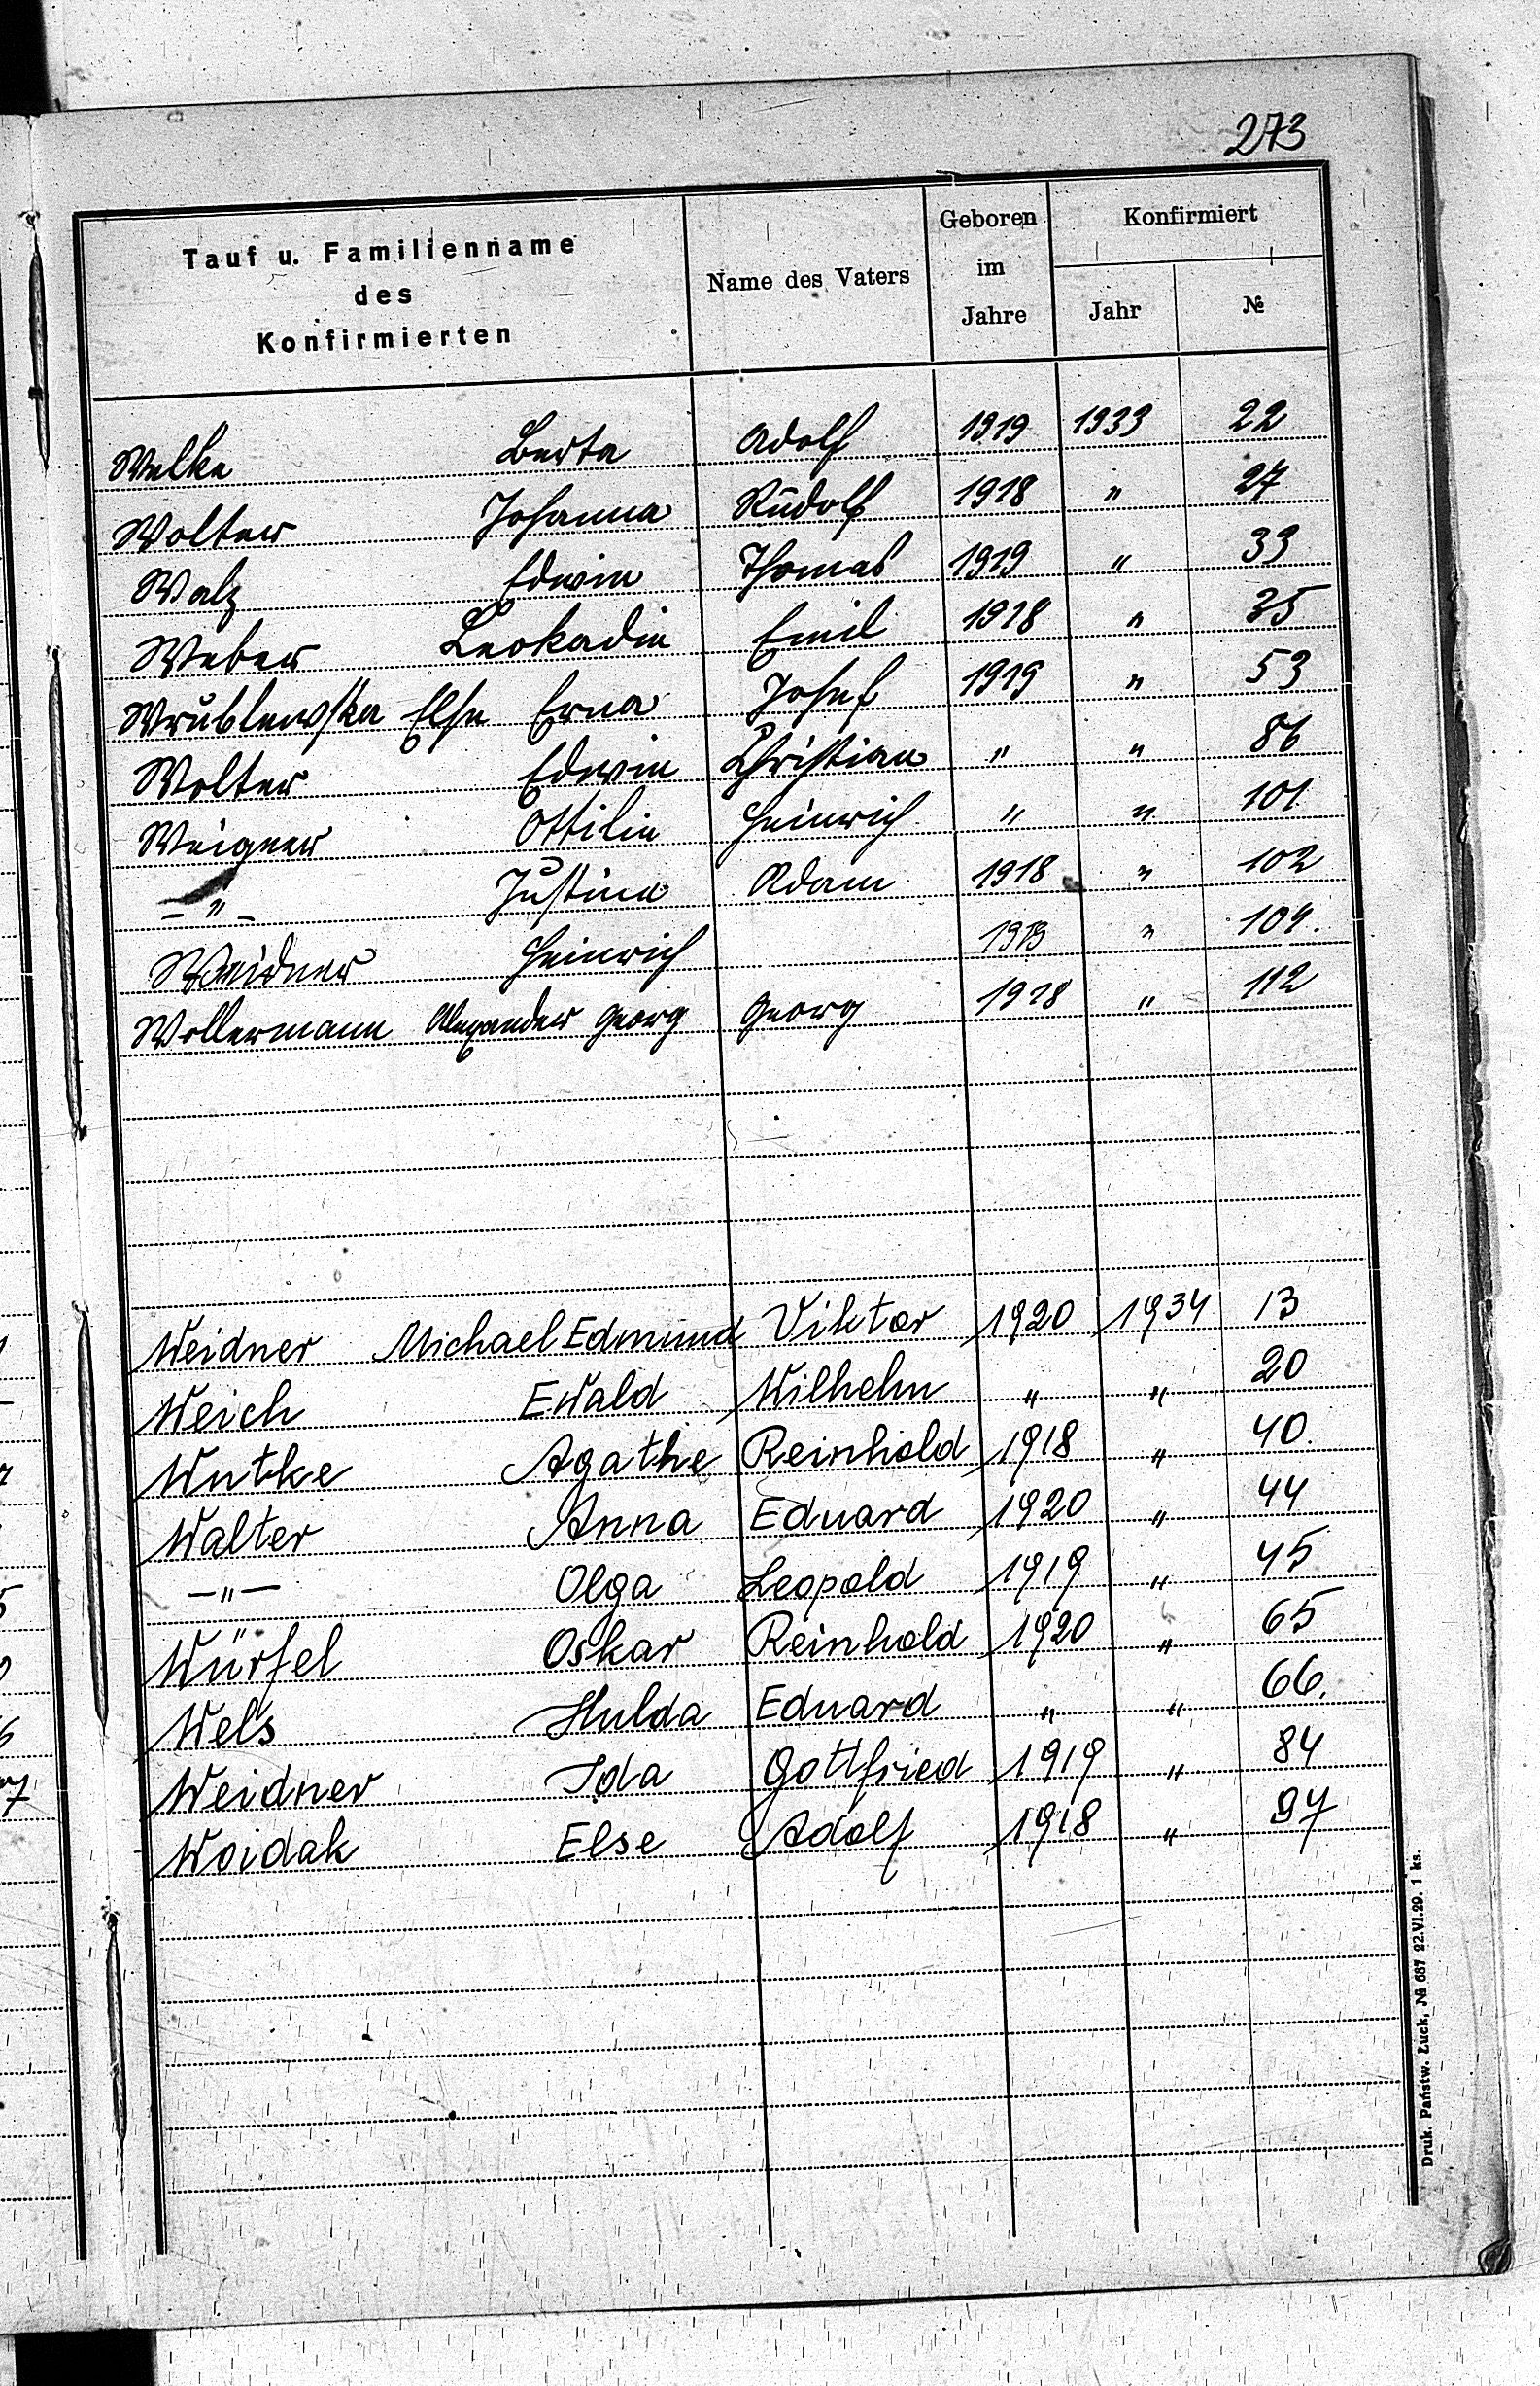 273
Tauf u. Familienname des Konfirmierten Name des Vaters Geboren im Jahre Konfirmiert Jahr №
Welke Berta Adolf 1919 1933 22
Wolter Johanna Rudolf 1918 " 27
Walz Edwin Thomas 1919 " 33
Weber Leokadie Emil 1918 " 35
Wrublewska Else Erna Josef 1919 " 53
Wolter Edwin Christian " " 86
Weigner Ottilie Heinrich " " 101
— " — Justina Adam 1918 " 102
Weidner Heinrich " 104.
Wollermann Alexander Georg Georg 1918 " 112
Weidner Michael Edmund Viktor 1920 1934 13
Weich Ewald Wilhelm " " 20
Wutke Agathe Reinhold 1918 " 40.
Walter Anna Eduard 1920 " 44
— " — Olga Leopold 1919 " 45
Würfel Oskar Reinhold 1920 " 65
Wels Hulda Eduard " " 66.
Weidner Ida Gottfried 1919 " 84
Woidak Else Adolf 1918 " 97
Druk. Państw. Łuck, № 687 22.VI.29. 1 ks.